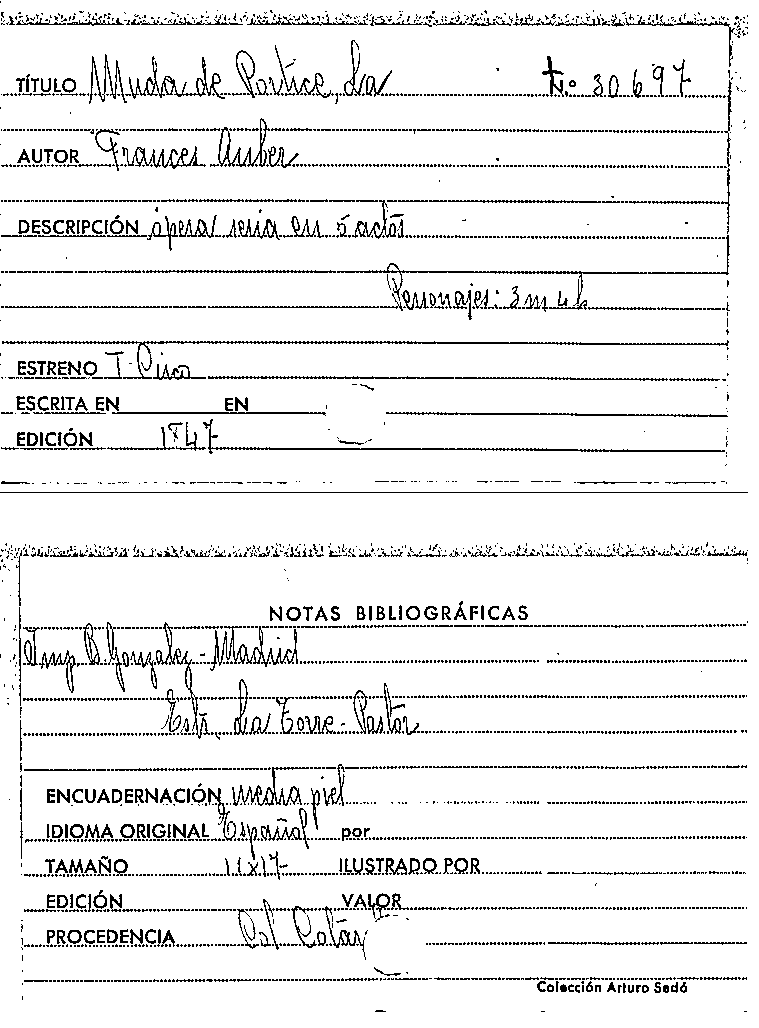 TÍTULO Muda de Portice, La N.º 30697
AUTOR Frances Auber
DESCRIPCIÓN ópera seria en 5 actos
Personajes: 3 m 4 h
ESTRENO T. Circo
ESCRITA EN EN
EDICIÓN 1847
NOTAS BIBLIOGRÁFICAS
Imp. B. Gonzalez - Madrid
Estr. La Torre - Pastor
ENCUADERNACIÓN media piel
IDIOMA ORIGINAL Español por
TAMAÑO 11x17 ILUSTRADO POR
EDICIÓN VALOR
PROCEDENCIA Col
Colección Arturo Sedó